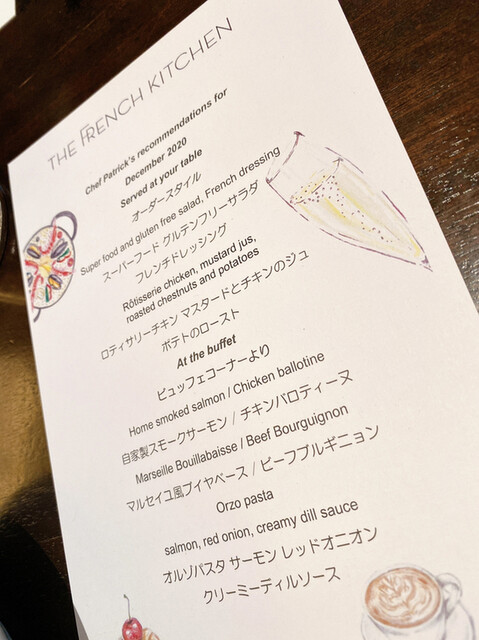 THE FRENCH KITCHEN
Chef Patrick's recommendations for
December 2020
Served at your table
オーダースタイル
Super food and gluten free salad, French dressing
スーパーフード グルテンフリーサラダ
フレンチドレッシング
Rôtisserie chicken, mustard jus,
roasted chestnuts and potatoes
ロティサリーチキン マスタードとチキンのジュ
ポテトのロースト
At the buffet
ビュッフェコーナーより
Home smoked salmon / Chicken ballotine
自家製スモークサーモン / チキンバロティーヌ
Marseille Bouillabaisse / Beef Bourguignon
マルセイユ風ブイヤベース / ビーフブルギニョン
Orzo pasta
salmon, red onion, creamy dill sauce
オルソパスタ サーモン レッドオニオン
クリーミーディルソース